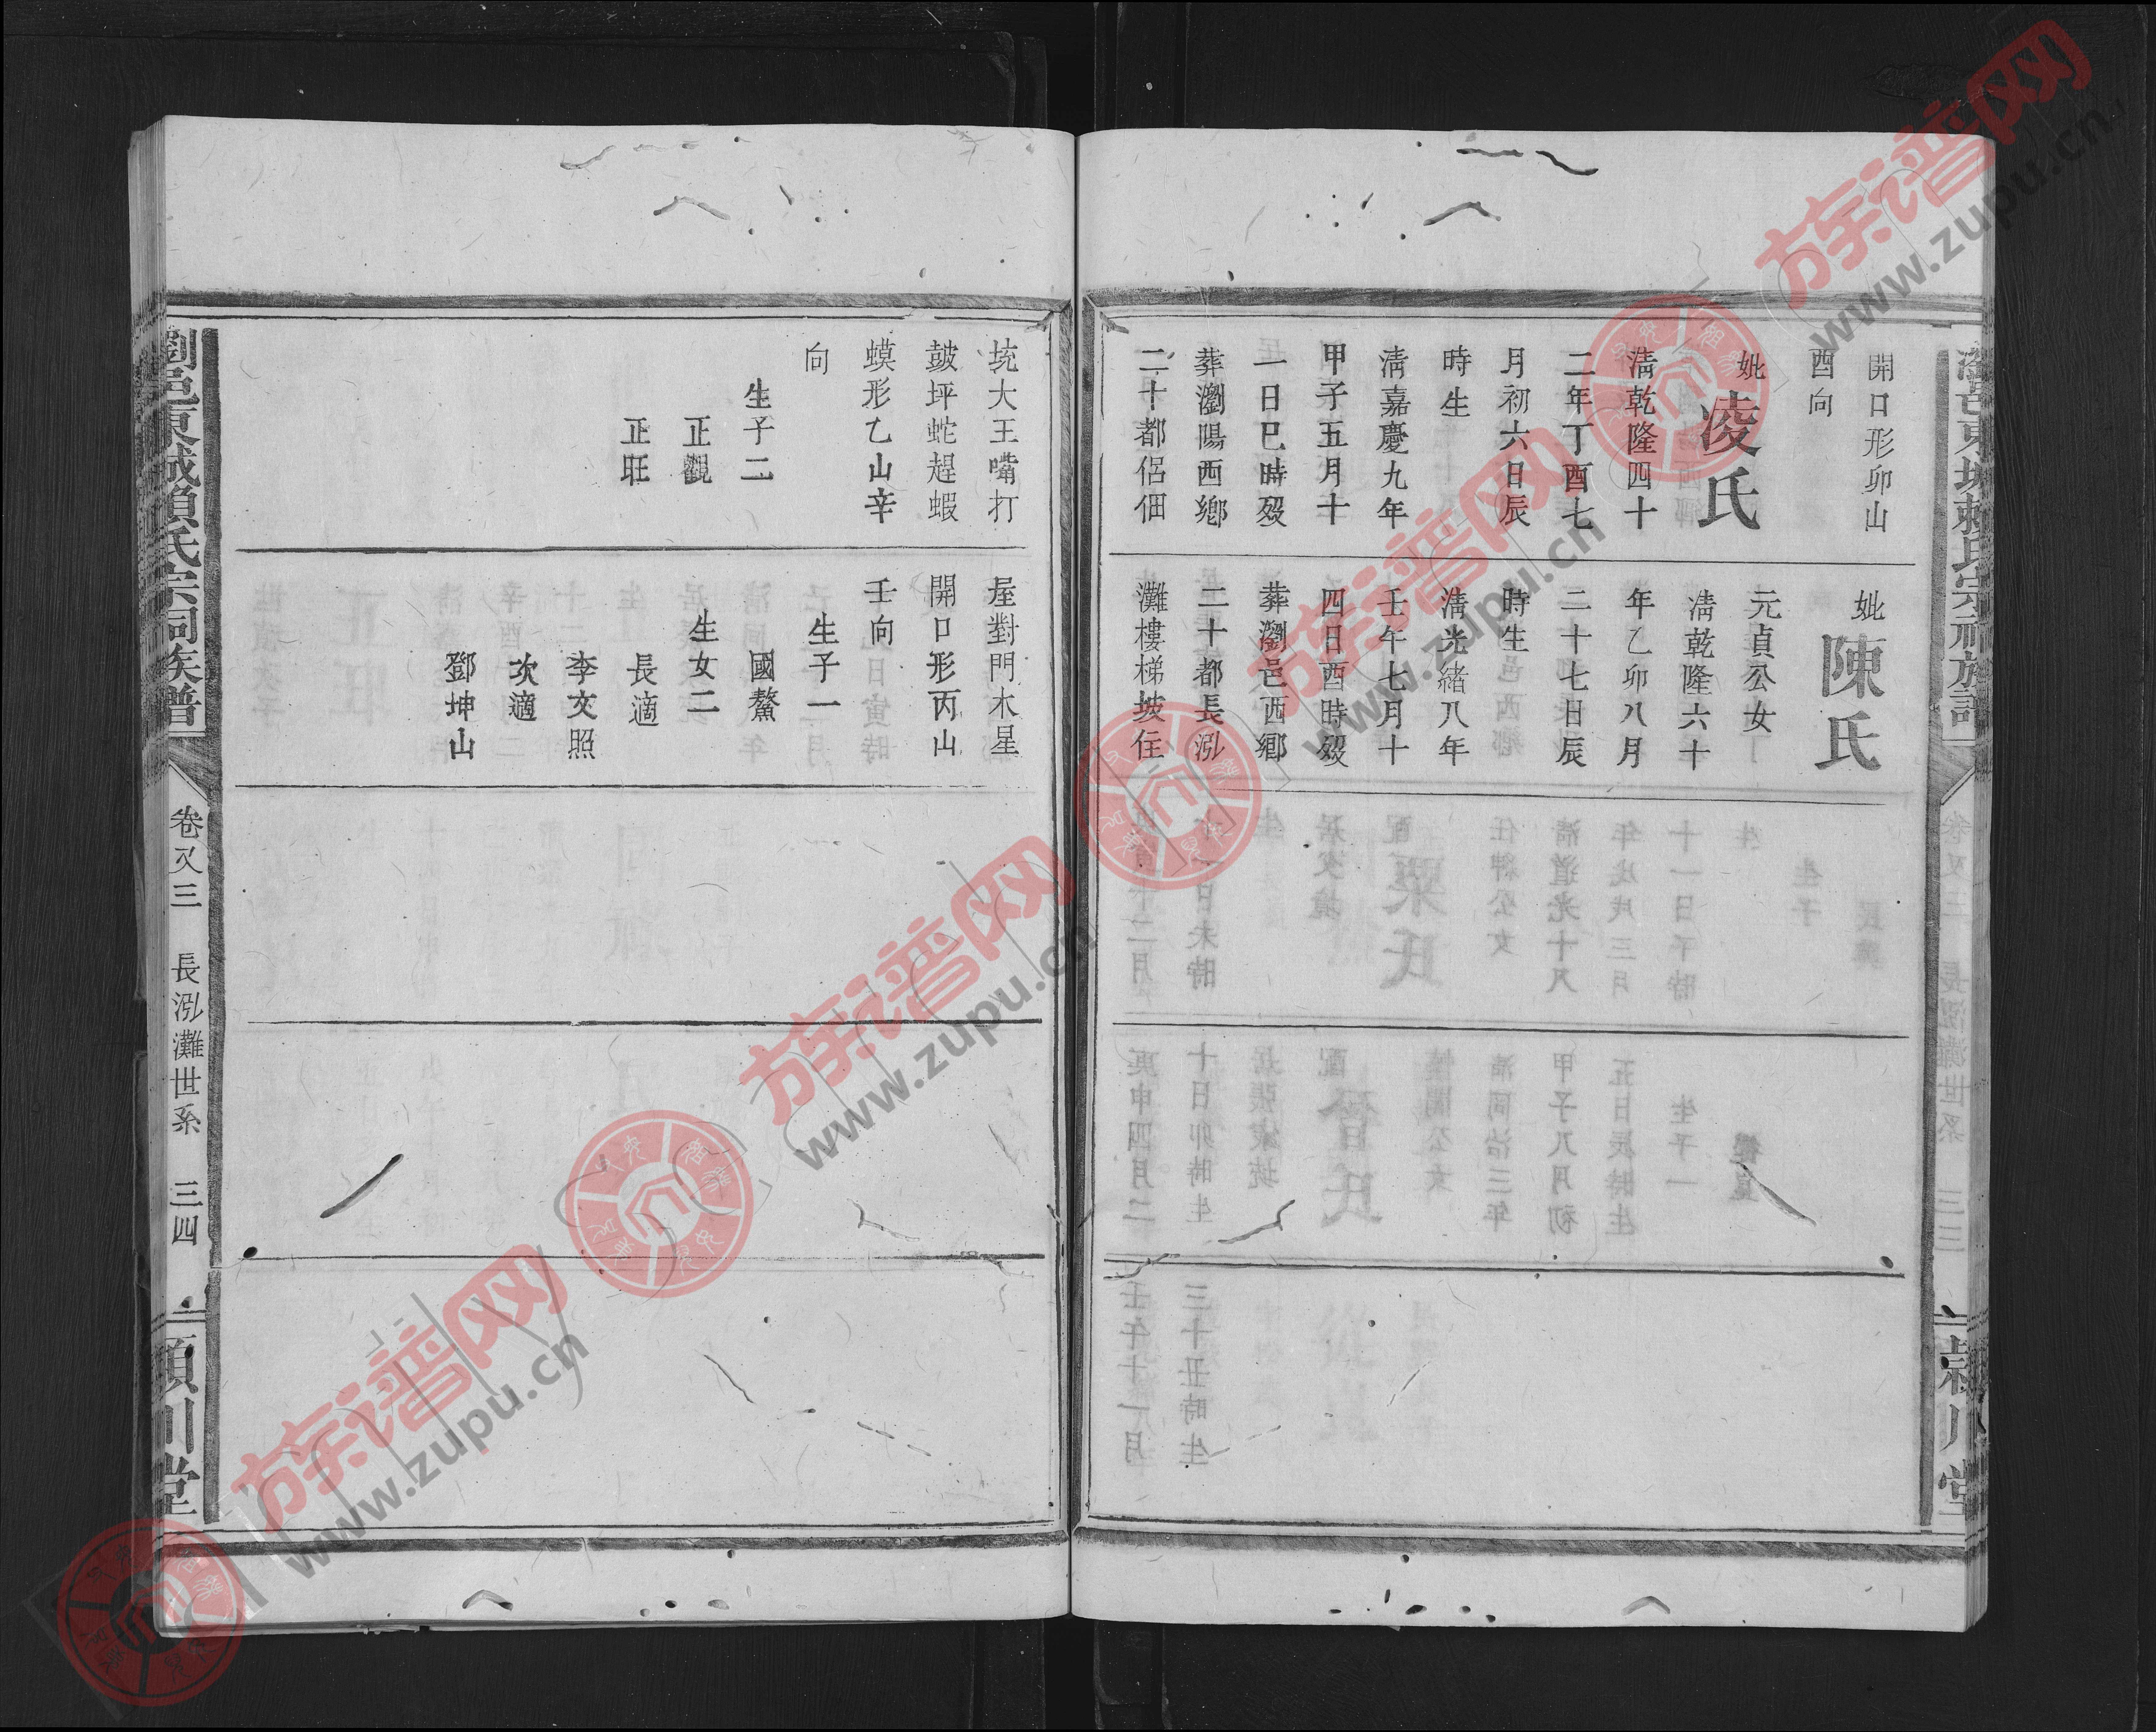 開口形卯山
酉向
妣凌氏
淸乾隆四十
二年丁酉七
月初六日辰
時生
淸嘉慶九年
甲子五月十
一日巳時歿
葬瀏陽西鄕
二十都侶佃
妣陳氏
元貞公女
淸乾隆六十
年乙卯八月
二十七日辰
時生
淸光緒八年
壬午七月十
四日酉時歿
葬瀏邑西鄕
二十都長泓
灘樓梯坡住
坑大王嘴打
鼓坪蛇趕蝦
蟆形乙山辛
向
生子二
正觀
正旺
屋對門木星
開口形丙山
壬向
生子一
國鰲
生女二
長適
李文照
次適
鄧坤山
瀏邑東城賴氏宗祠族譜
卷又三
長泓灘世系
三四
潁川堂
族谱网
www.zupu.cn
族谱网
www.zupu.cn
族谱网
www.zupu.cn
族谱网
www.zupu.cn